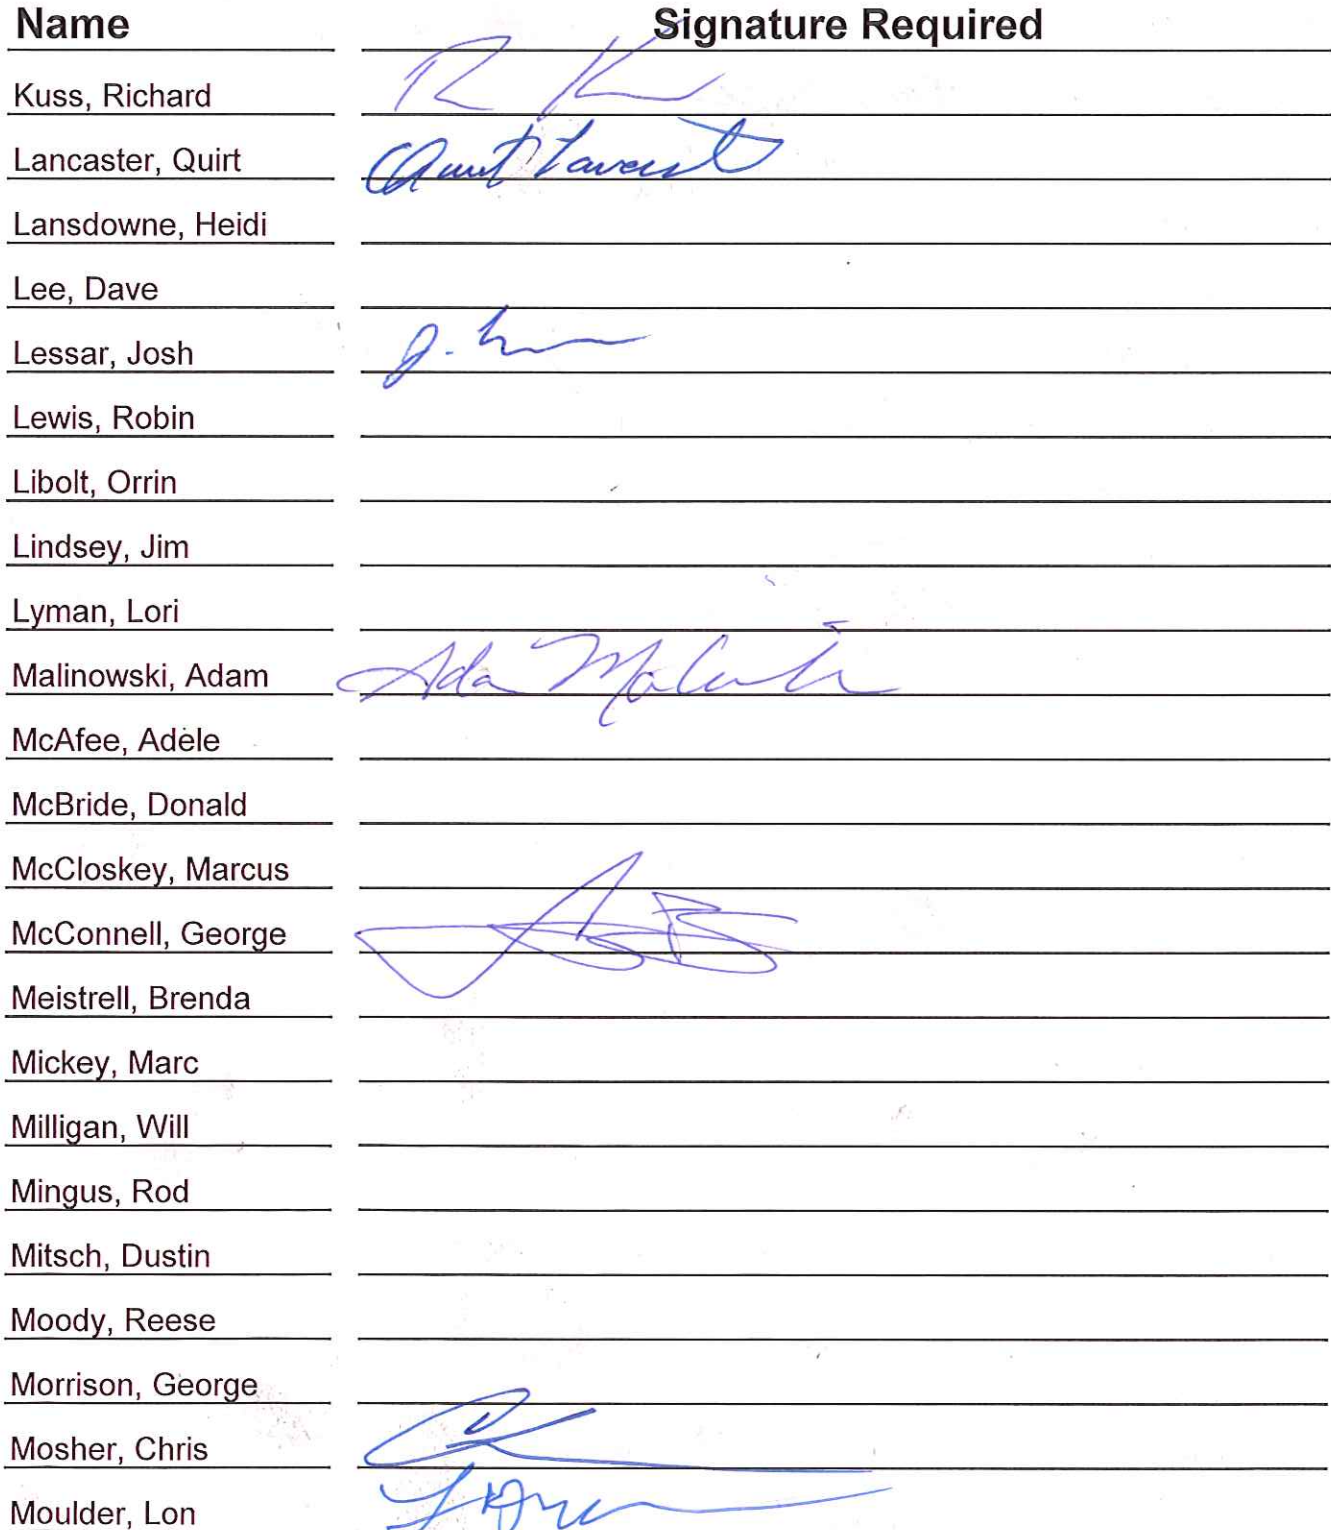 Name Signature Required
Kuss, Richard
Lancaster, Quirt
Lansdowne, Heidi
Lee, Dave
Lessar, Josh
Lewis, Robin
Libolt, Orrin
Lindsey, Jim
Lyman, Lori
Malinowski, Adam
McAfee, Adele
McBride, Donald
McCloskey, Marcus
McConnell, George
Meistrell, Brenda
Mickey, Marc
Milligan, Will
Mingus, Rod
Mitsch, Dustin
Moody, Reese
Morrison, George
Mosher, Chris
Moulder, Lon